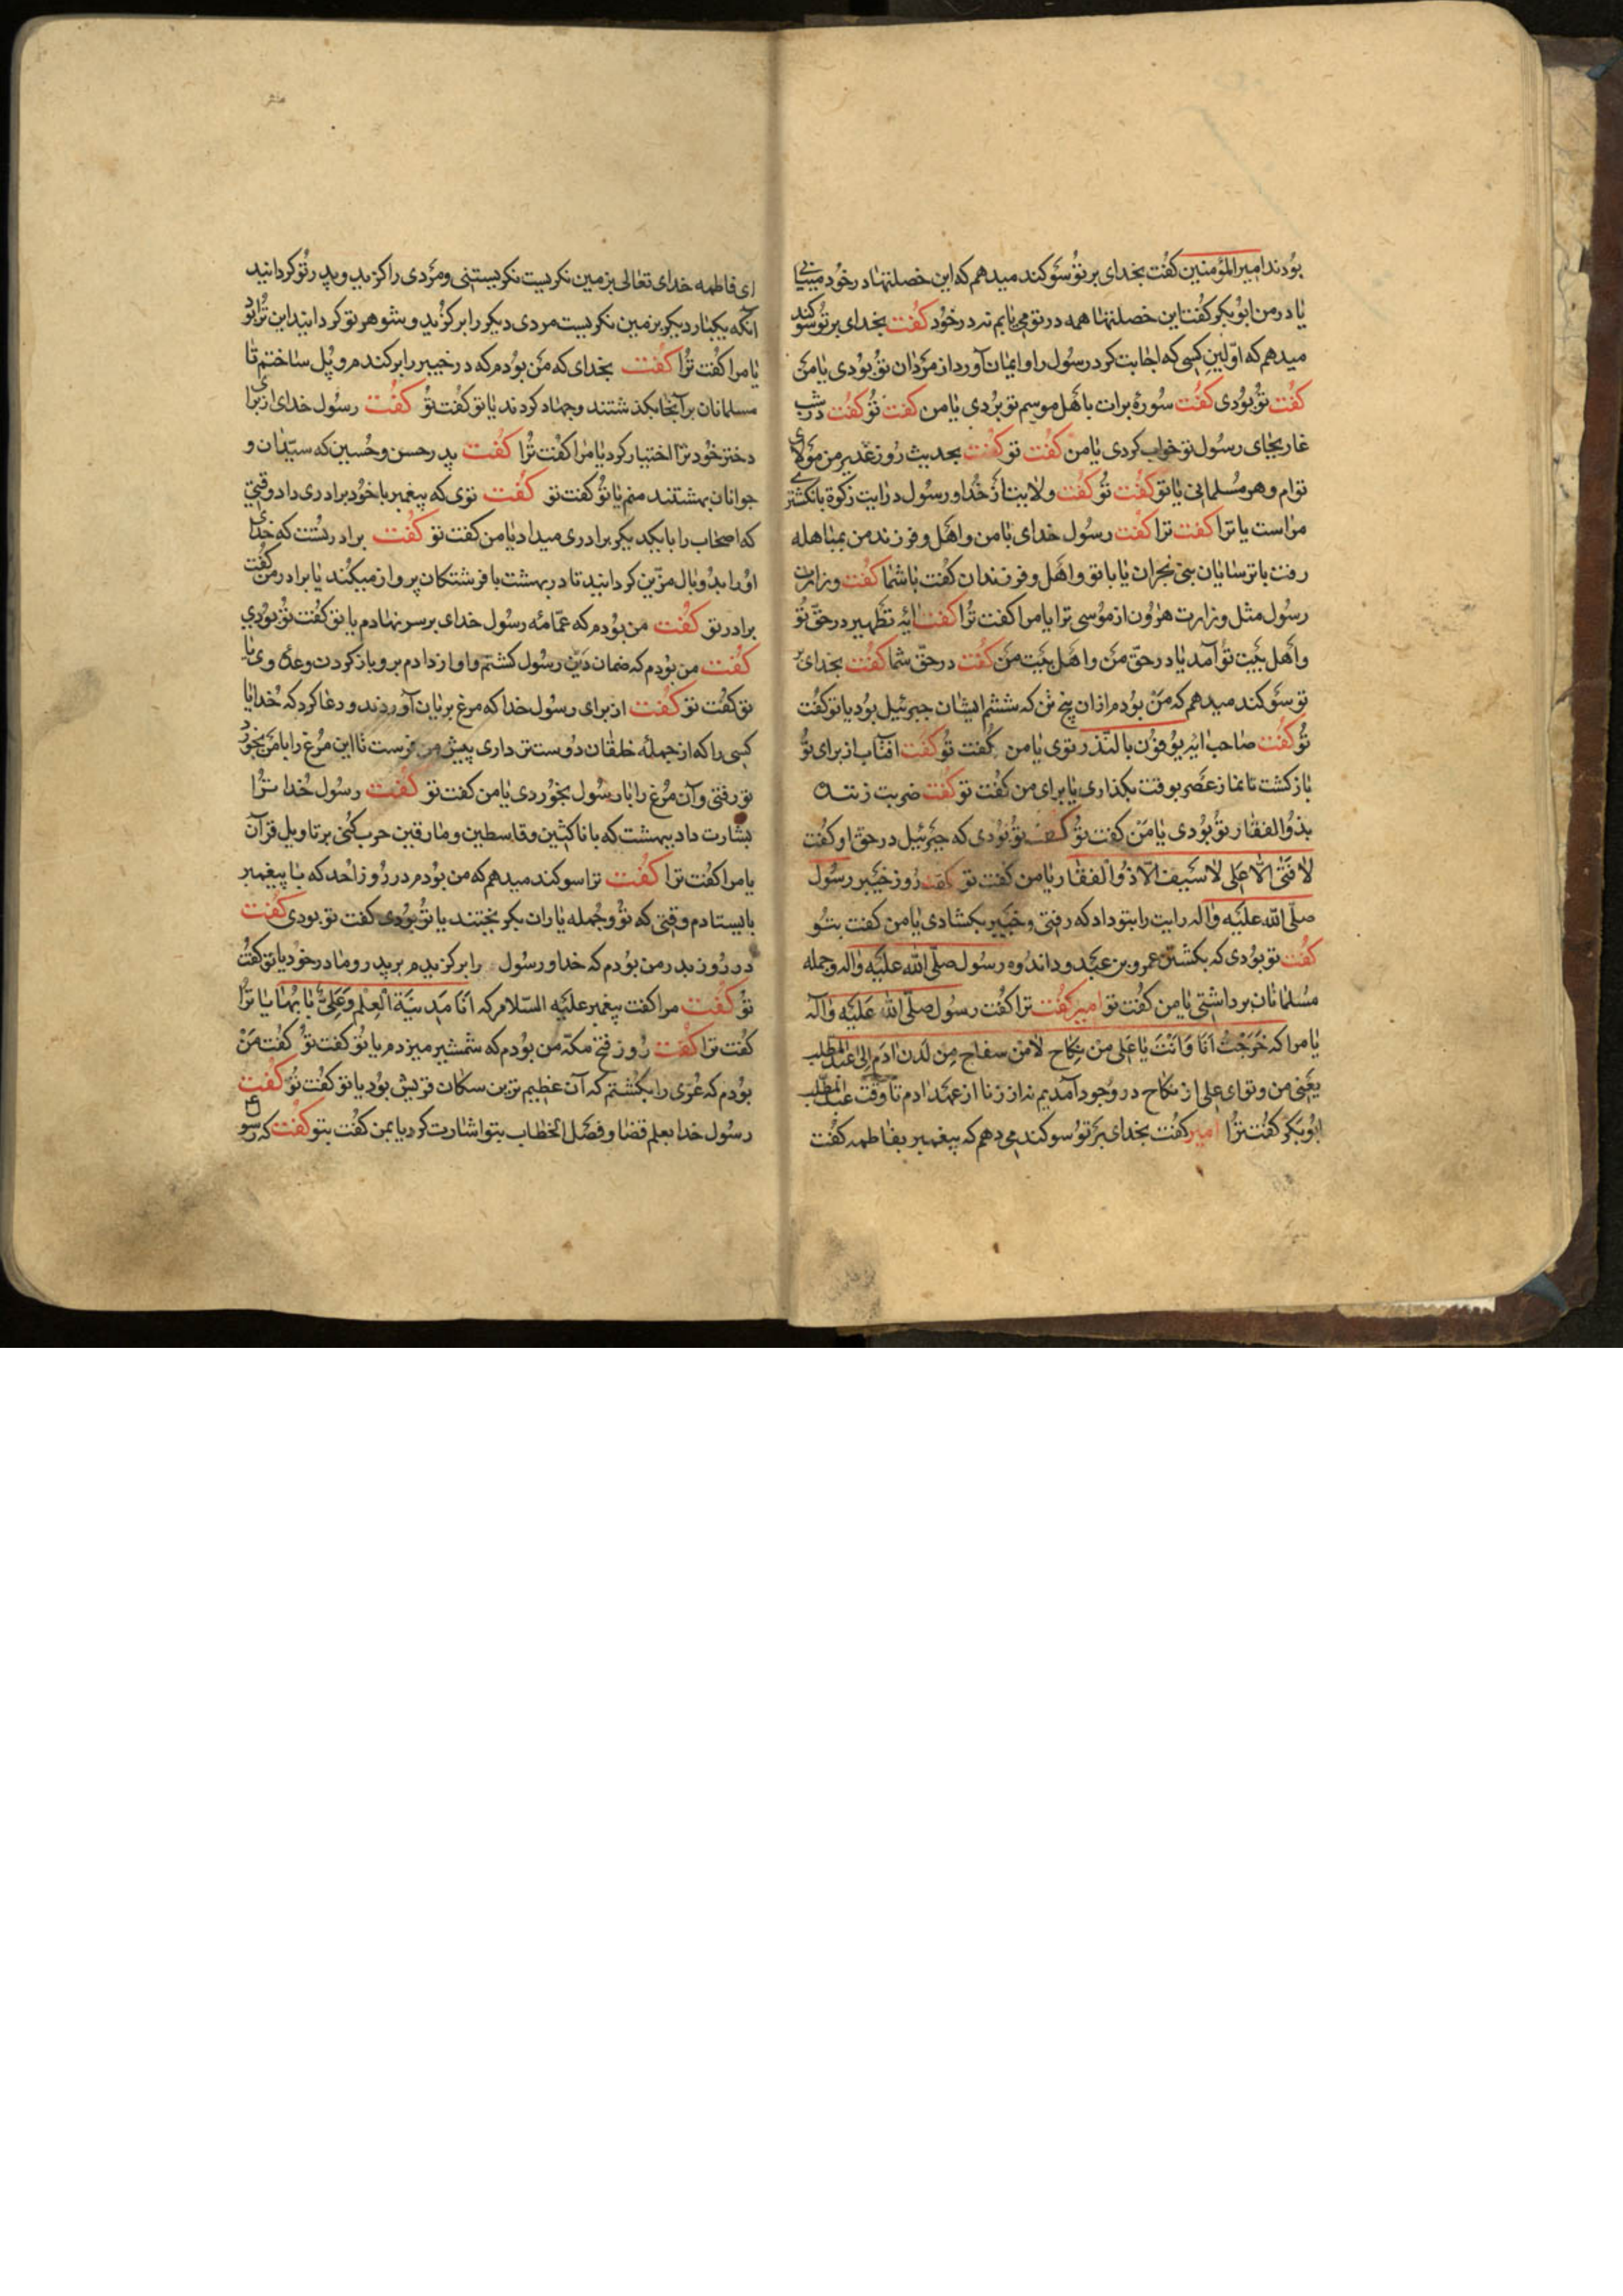 بودند امیرالمؤمنین کفت بخدای بر تو سوکند میدهم که این خصلتها در خود میبینی
یا در من ابوبکر کفت این خصلتها همه در تو می یابم نه در خود کفت بخدای بر تو سوکند
میدهم که اولین کسی که اجابت کرد رسول را و ایمان آورد از مردان تو بودی یا من
کفت تو بودی کفت سورهٔ برات باهل موسم تو بردی یا من کفت تو کفت در شب
غار بجای رسول تو خواب کردی یا من کفت تو کفت بحدیث روز غدیر من مولای
توام و هر مسلمانی یا تو کفت تو کفت ولایت از خدا و رسول در ایت زکوة بانکشتری
مراست یا ترا کفت ترا کفت رسول خدای با من و اهل و فرزند من بمباهله
رفت با ترسایان بنی نجران یا با تو و اهل و فرزندان کفت با شما کفت وزارت
رسول مثل وزارت هرون از موسی ترا یا مرا کفت ترا کفت ایه تطهیر در حق تو
و اهل بیت تو آمد یا در حق من و اهل بیت من کفت در حق شما کفت بخدای بر
تو سوکند میدهم که من بودم ازان پنج تن که ششم ایشان جبرئیل بود یا تو کفت
تو کفت صاحب ایه یوفون بالنذر توی یا من کفت تو کفت افتاب از برای تو
باز کشت تا نماز عصر بوقت بکذاری یا برای من کفت تو کفت ضربت زننده
بذو الفقار تو بودی یا من کفت تو کفت تو بودی که جبرئیل در حق او کفت
لا فتی الا علی لا سیف الا ذو الفقار یا من کفت تو کفت روز خیبر رسول
صلی الله علیه و اله رایت را بتو داد که رفتی و خیبر بکشادی یا من کفت بتو
کفت تو بودی که بکشتن عمرو بن عبد ود اندوه رسول صلی الله علیه و اله و جمله
مسلمانان برداشتی یا من کفت تو امیر کفت ترا کفت رسول صلی الله علیه و آله
یا مرا که خرجت انا و انت یا علی من نکاح لا من سفاح من لدن ادم الی عبد المطلب
یعنی من و تو ای علی از نکاح در وجود آمدیم نه از زنا از عهد ادم تا وقت عبد المطلب
ابو بکر کفت ترا امیر کفت بخدای بر تو سوکند می دهم که پیغمبر بفاطمه کفت
ای فاطمه خدای تعالی بزمین نکریست نکریستنی و مردی را کزید و پدر تو کردانید
آنکه یکبار دیکر بزمین نکریست مردی دیکر را برکزید و شوهر تو کردانید این ترا بود
یا مرا کفت ترا کفت بخدای که من بودم که در خیبر را برکندم و پل ساختم تا
مسلمانان بر آنجا بکذشتند و جهاد کردند یا تو کفت تو کفت رسول خدای از برای
دختر خود ترا اختیار کرد یا مرا کفت ترا کفت پدر حسن و حسین که سیدان و
جوانان بهشتند منم یا تو کفت تو کفت توی که پیغمبر با خود برادری داد وقتی
که اصحاب را با یکدیکر برادری میداد یا من کفت تو کفت برادر تست که خدای
او را بدو بال مزین کردانید تا در بهشت با فرشتکان پرواز میکند یا برادر من کفت
برادر تو کفت من بودم که عمامهٔ رسول خدای بر سر نهادم یا تو کفت تو بودی
کفت من بودم که ضمان دین رسول کشتم و اواز دادم برو باز کردن وعدهٔ وی یا
تو کفت تو کفت از برای رسول خدا که مرغ بریان آوردند و دعا کرد که خدایا
کسی را که از جملهٔ خلقان دوستتر داری پیش من فرست تا این مرغ را با من بخورد
تو رفتی و آن مرغ را با رسول بخوردی یا من کفت تو کفت رسول خدا ترا
بشارت داد ببهشت که با ناکثین و قاسطین و مارقین حرب کنی بر تاویل قرآن
یا مرا کفت ترا کفت ترا سوکند میدهم که من بودم در روز احد که با پیغمبر
بایستادم وقتی که تو و جمله یاران بکریختند یا تو بودی کفت تو بودی کفت
در روز بدر من بودم که خدا و رسول را برکزیدم بر پدر و مادر خود یا تو کفت
تو کفت مرا کفت پیغمبر علیه السلام که انا مدینة العلم و علی بابها یا ترا
کفت ترا کفت روز فتح مکه من بودم که شمشیر میزدم یا تو کفت تو کفت من
بودم که عزی را بکشتم که آن عظیم ترین سکان قریش بود یا تو کفت تو کفت
رسول خدا بعلم قضا و فصل الخطاب بتو اشارت کرد یا بمن کفت بتو کفت که رسو